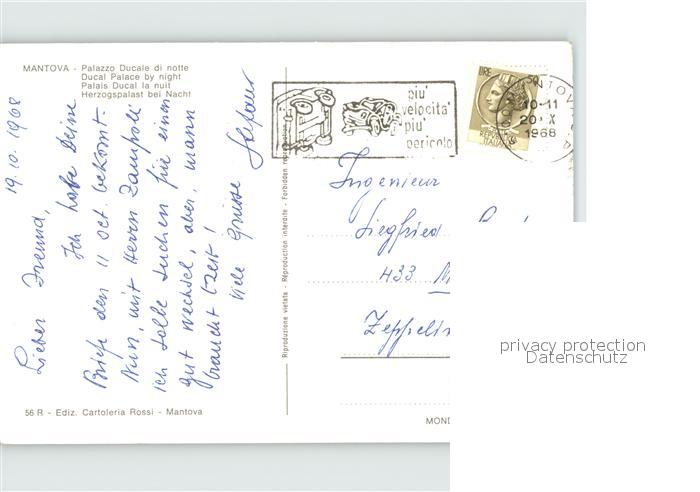 MANTOVA - Palazzo Ducale di notte
Ducal Palace by night
Palais Ducal la nuit
Herzogspalast bei Nacht
19.10.1968
Lieber Freund,
Ich habe Deine
Brief den 11 oct. bekomt.
Nun, mit Herrn Zampoli
ich solle suchen für einen
gut wechsel, aber, mann
braucht (zeit!
Viele Grüsse
56 R - Ediz. Cartoleria Rossi - Mantova
Riproduzione vietata - Réproduction interdite - Forbidden
più
velocità
più
pericolo
LIRE 50
10-11
20 X
1968
Ingenieur
Siegfried
433 M
Zeppelin
MOND
privacy protection
Datenschutz